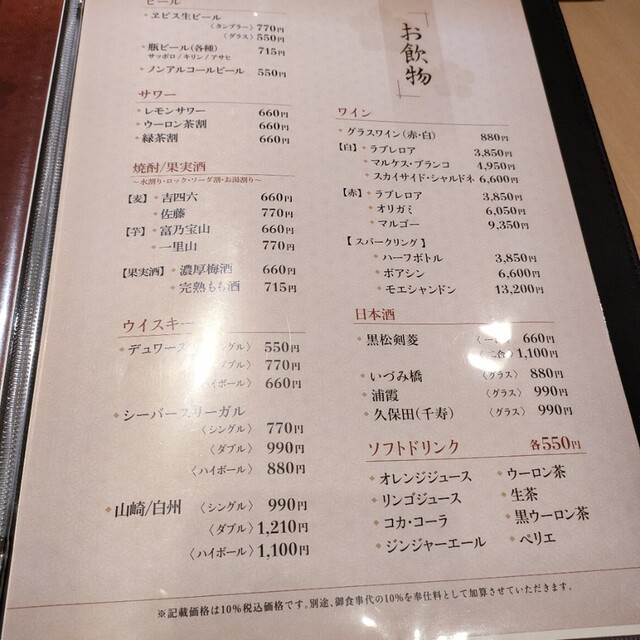 お飲物
ビール
ヱビス生ビール
〈タンブラー〉 770円
〈グラス〉 550円
瓶ビール(各種) 715円
サッポロ/キリン/アサヒ
ノンアルコールビール 550円
サワー
レモンサワー 660円
ウーロン茶割 660円
緑茶割 660円
焼酎/果実酒
〜水割り・ロック・ソーダ割・お湯割り〜
【麦】 吉四六 660円
佐藤 770円
【芋】 富乃宝山 660円
一里山 770円
【果実酒】 濃厚梅酒 660円
完熟もも酒 715円
ウイスキー
デュワース 〈シングル〉 550円
〈ダブル〉 770円
〈ハイボール〉 660円
シーバースリーガル
〈シングル〉 770円
〈ダブル〉 990円
〈ハイボール〉 880円
山崎/白州 〈シングル〉 990円
〈ダブル〉 1,210円
〈ハイボール〉 1,100円
ワイン
グラスワイン(赤・白) 880円
【白】 ラブレロア 3,850円
マルケス・ブランコ 4,950円
スカイサイド・シャルドネ 6,600円
【赤】 ラブレロア 3,850円
オリガミ 6,050円
マルゴー 9,350円
【スパークリング】
ハーフボトル 3,850円
ボアシン 6,600円
モエシャンドン 13,200円
日本酒
黒松剣菱 〈一合〉 660円
〈二合〉 1,100円
いづみ橋 〈グラス〉 880円
浦霞 〈グラス〉 990円
久保田(千寿) 〈グラス〉 990円
ソフトドリンク 各550円
オレンジジュース ウーロン茶
リンゴジュース 生茶
コカ・コーラ 黒ウーロン茶
ジンジャーエール ペリエ
※記載価格は10%税込価格です。別途、御食事代の10%を奉仕料として加算させていただきます。